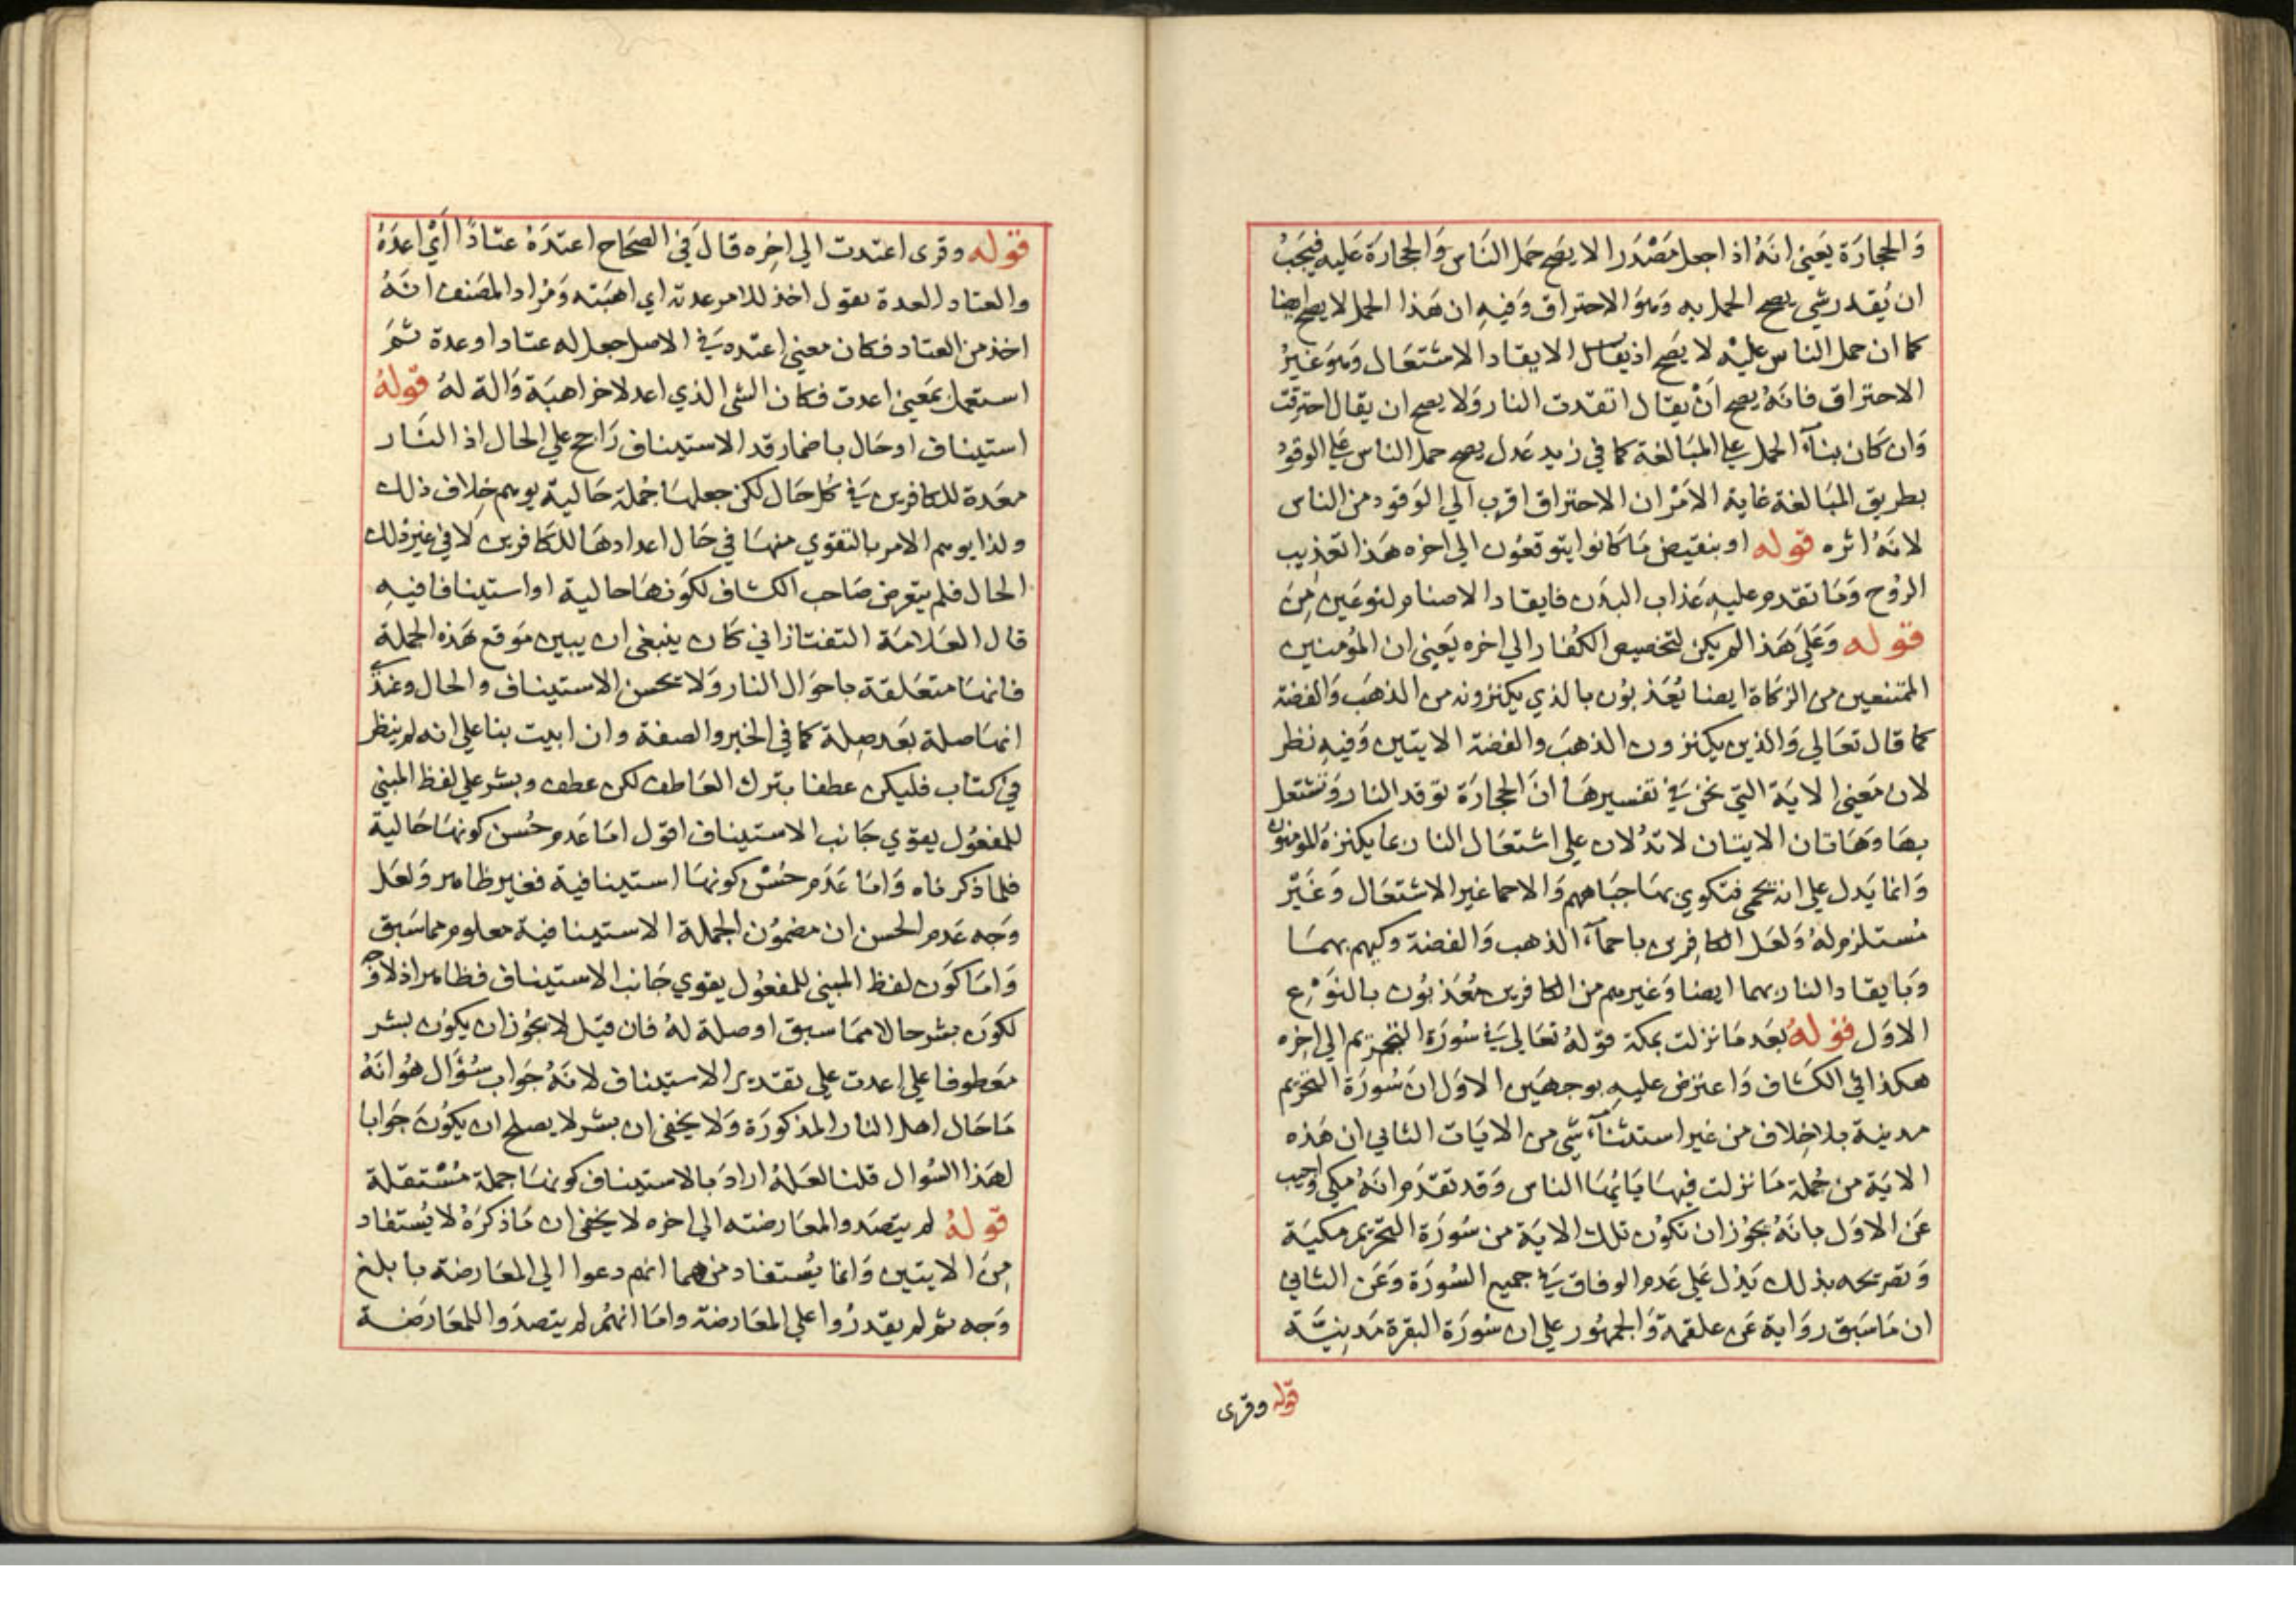 وَالحجارَة يَعني انهُ اذا جعل مَصْدَرا لا يصَح حمل النَاس وَالحجارَة عَليه فيَجَبُ
ان يُقدر شي يصح الحمل به وَهوَ الاحتراق وَفيهِ ان هَذا الحمل لا يصح ايضا
كما ان حمل الناس عليْه لا يصَح اذ يقال الايقاد الاشتعَال وَهوَ غَيرُ
الاحتراق فانهُ يصح اَنْ يقال اتقدت النار وَلا يصح ان يقال احترقت
وَان كَان بنآءَ الحمل علي المبَالغة كما في زيد عَدل يصح حمل الناس علي الوقود
بطريق المبَالغة غاية الامْر ان الاحتراق اقرب الي الوَقود من الناس
لانهُ اثره قوله او بنقيض مَا كانوا يتوقعُون الي اخره هَذا تعَذيب
الرُوح وَمَا تقدم عليهِ عَذاب البدَن فايقاد الاصنام لنوعَين مِنَ
قوله وَعَليَ هَذا لم يكن لتخصيص الكُفار الي اخره يَعني ان المؤمنين
الممتنعين من الزكاة ايضا يُعَذبوُن بالذي يكنزونه من الذهَب وَالفضة
كما قال تعَالي وَالذين يكنزون الذهَبَ والفضة الايتين وَفيهِ نظر
لان مَعني الايَة التي نحن في تفسيرهَا انَ الحجارَة توقد النار وَتشتعل
بهَا وَهَاتان الايتان لا تدُلان علي اشتعَال النار بما يكنزهُ المومنون
وَانما يَدل علي انه يحمي فتكوي بهَا جبَاههم وَالاحما غير الاشتعَال وَغَيْر
مُستلزم لهُ وَلعَل الكافرين باحمآء الذهب وَالفضة وكيهم بهمَا
وَبَايقاد النار بهما ايضا وَغيرهم من الكافرين مُعَذبُون بالنوَعِ
الاوَل قوله بَعَد مَا نزلت بمكة قوله تعَالي في سُورَة التحريم الي اخره
هكذا في الكشَاف وَاعترض عليهِ بوجهَين الاوَل ان سُورَة التحريم
مدينة بلا خِلاف من غير استثنآء شي من الايَات الثاني ان هَذه
الايَة من جُملة مَا نزلت فيهَا يَا ايهَا الناس وَقد تقدَم انهُ مكي واجيب
عَن الاوَل بانهُ يجوُز ان تكوُن تلك الايَة من سُورَة التحريم مكيَة
وَتصريحه بذلك يَدُل عَلي عَدم الوفاق في جميع السُورَة وَعَن الثاني
ان مَا سَبق روَاية عَن علقمة وَالجمهُور علي ان سُورَة البقرة مَدينيَّة
قوله وقرى
قوله وقرى اعتدت الي اخِره قالَ في الصحَاح اعتدَهُ عتادًا اَيْ اعدَهُ
والعتاد العدة يقول اخذ للامر عدته اي اهبَته وَمراد المصَنف انهُ
اخذ من العتاد فكان معني اعتده في الاصل جعل له عتادا وعدة ثمَ
استعمل بمَعني اعدت فكان الشي الذي اعد لاخر اهبَة وَالة لهُ قولهُ
استيناف اوحَال باضمار قد الاستيناف رَاجح علي الحال اذ النَار
معَدة للكافرين في كل حَال لكن جعلهَا جُملة حَالية يوهم خِلاف ذلك
ولذا يوهم الامر بالتقوي منهَا في حَال اعدادهَا للكافرين لا في غير ذلك
الحال فلم يتعرض صَاحب الكشاف لكوَنهَا حالية او استينافا فيهِ
قال العَلامَة التفتازاني كَان ينبغي ان يبين مَوقع هَذه الجملة
فانهَا متعَلقة باحوَال النار وَلا يحسن الاستيناف والحال وعندي
انهَا صلة بَعَد صِلة كما في الخبر والصفة وان ابيت بنا علي انه لم ينظر
في كتاب فليكن عطفا بترك العَاطف لكن عطف وبشر علي لفظ المبني
للمفعُول يقوي جَانب الاستيناف اقول امَا عَدم حُسن كونهَا حَالية
فلما ذكرناه وَامَا عَدَم حُسْن كونهَا استينافية فغير ظاهر وَلعَل
وَجه عَدم الحسن ان مضموُن الجملة الاستينافية معلوم مما سَبق
وَامَا كَوَن لفظ المبني للمفعُول يقوي جَانب الاستيناف فظاهر اذ لا وَجه
لكوَن بشر حالا ممَا سبق او صلة لهُ فان قيل لا يجوُز ان يكوُن بشر
مَعَطوفا علي اعدت علي تقدير الاستيناف لانهُ جَواب سُؤال هُو انَهُ
مَا حَال اهل النار المذكورَة وَلا يخفي ان بشر لا يصلح ان يكوُن جَوابا
لهَذا السُوال قلنا لعَلهُ ارادَ بالاستيناف كونهَا جملة مُسْتقلة
قوله لم يتصَدوا لمعَارضته الي اخره لا يخفي ان مَا ذكرَهُ لا يُستفاد
مِنَ الايتين وَانما يُستفاد منهما انهم دعوا الي المعَارضة بابلغ
وَجه ثم لم يقدرُوا علي المعَارضة وامَا انهُم لم يتصدَوا للمعَارضَة